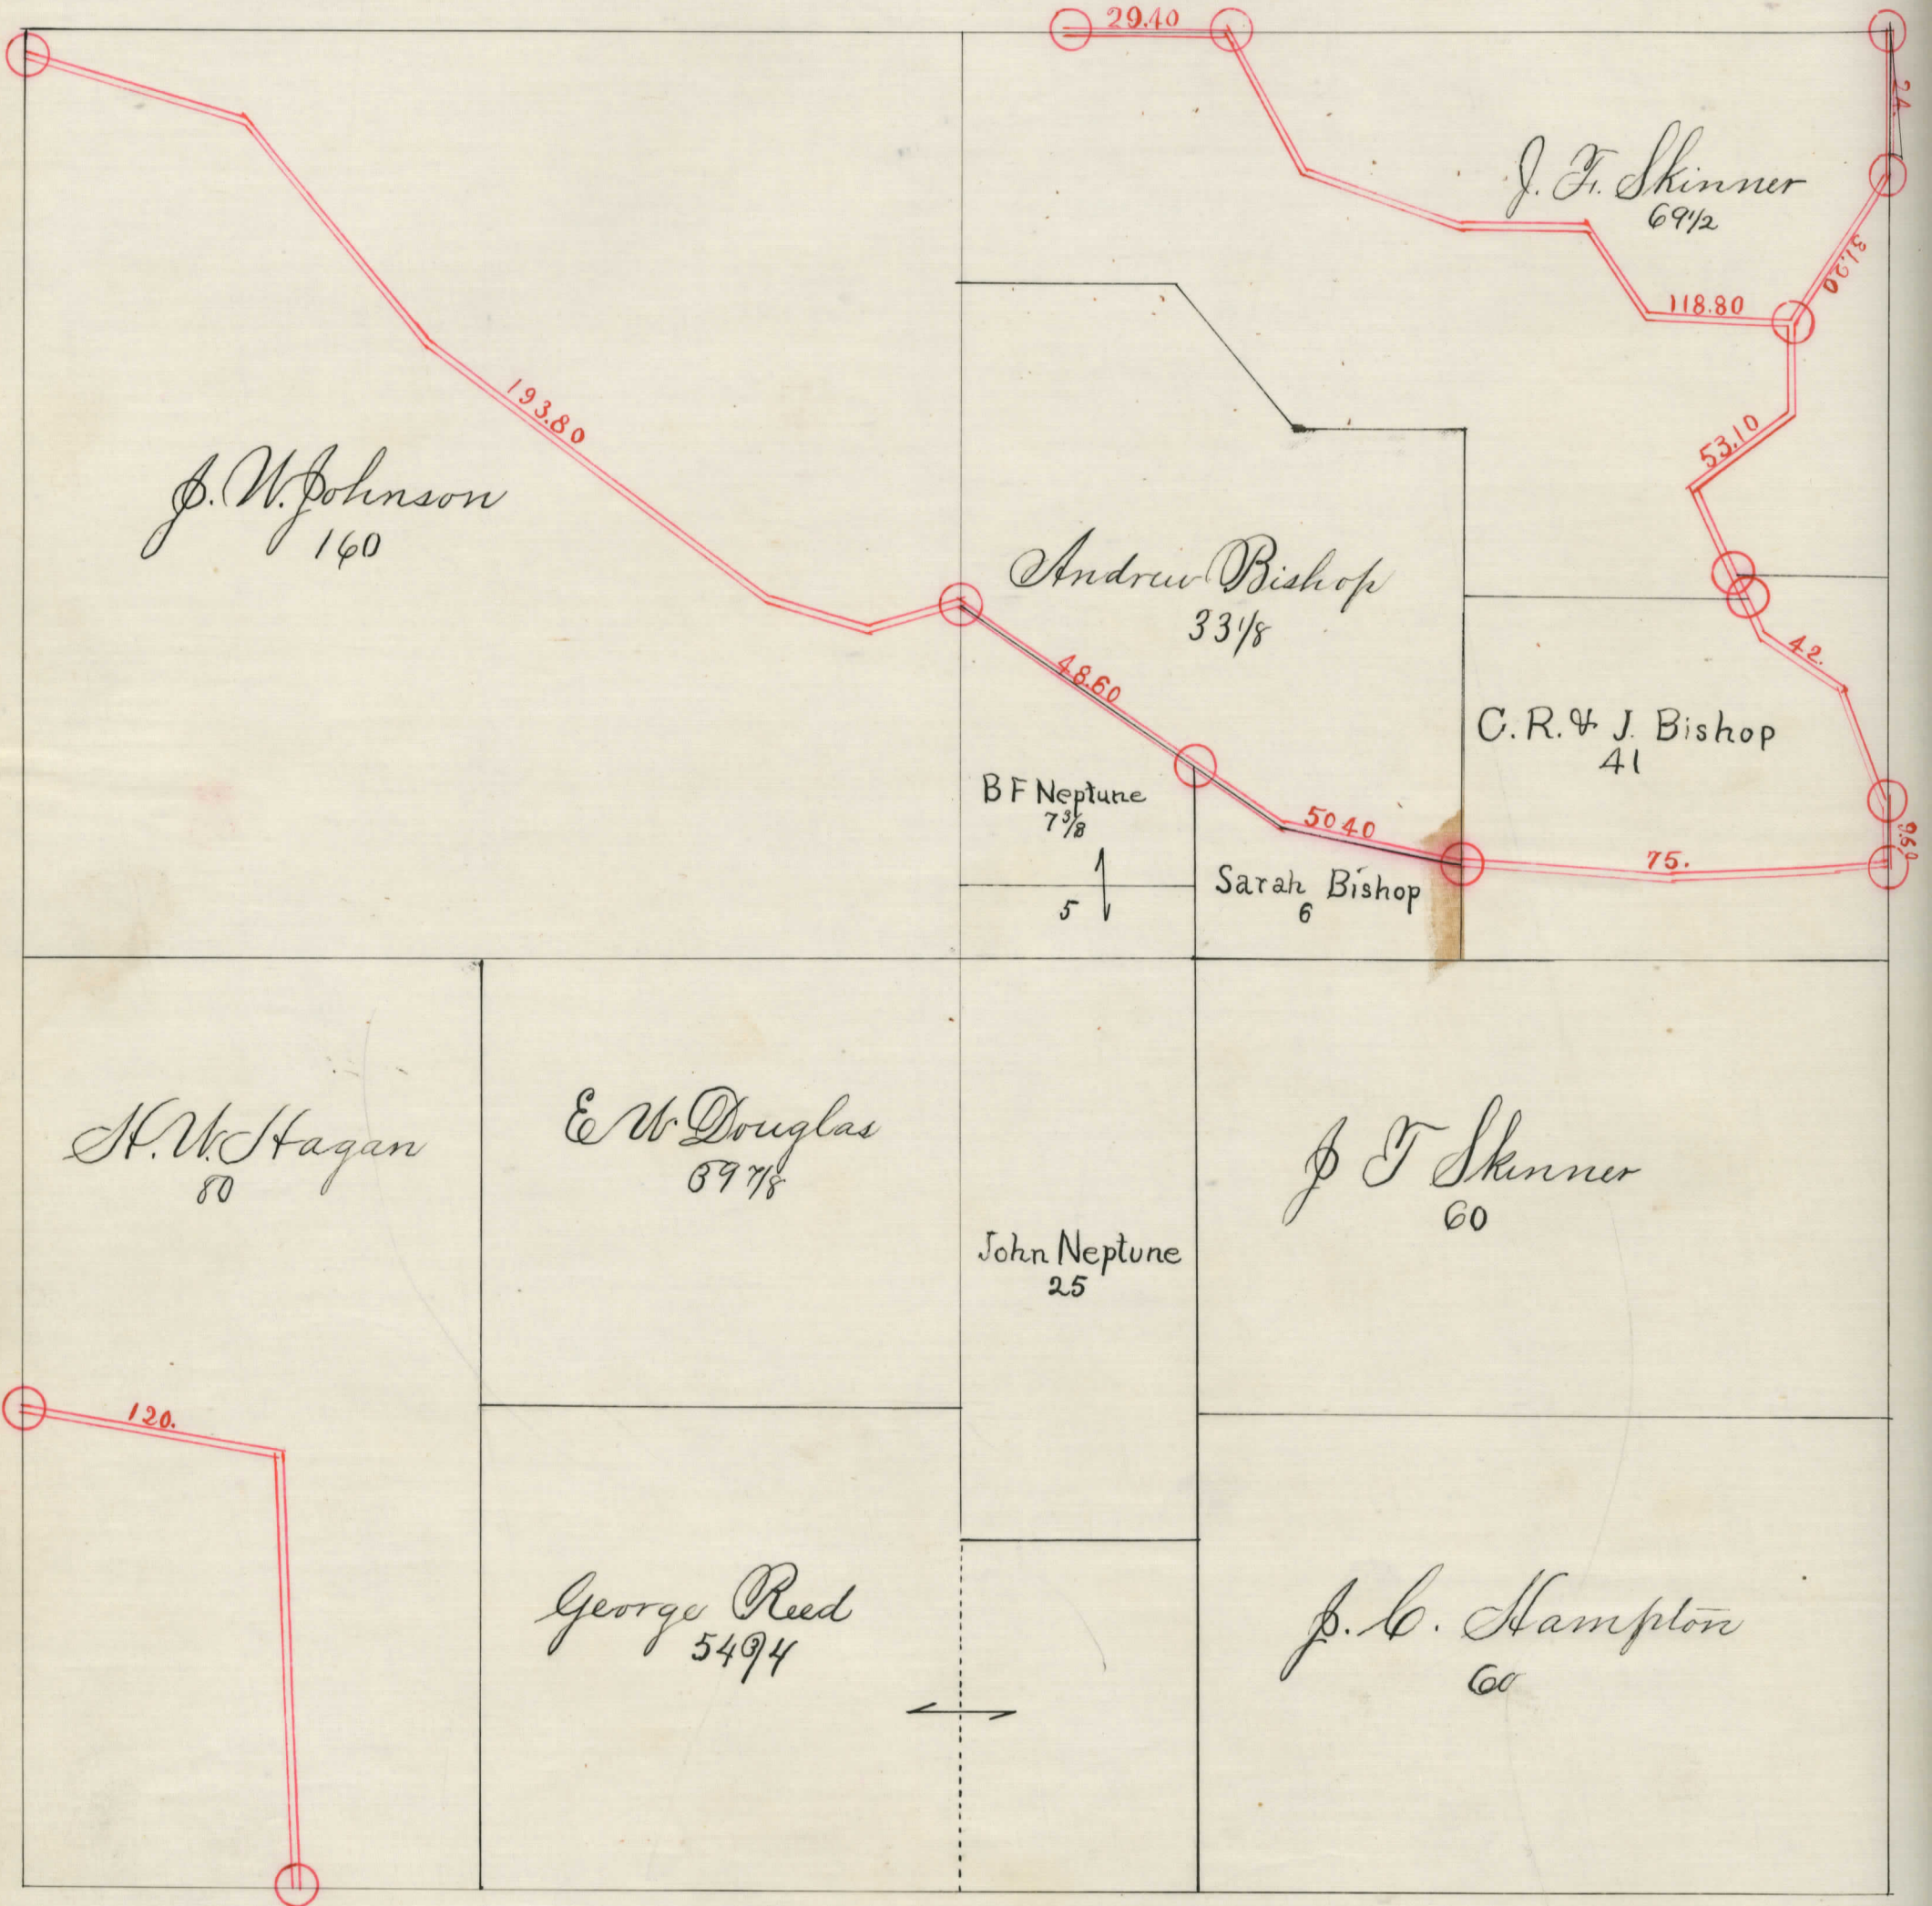 29.40
24.
J. F. Skinner
69 1/2
31.20
118.80
193.80
53.10
J. W. Johnson
160
Andrew Bishop
33 1/8
48.60
42.
C. R. & J. Bishop
41
B F Neptune
7 3/8
50 40
75.
9.60
Sarah Bishop
6
5
H. W. Hagan
80
E W Douglas
39 7/8
J T Skinner
60
John Neptune
25
120.
George Reed
54 3/4
J. C. Hampton
60